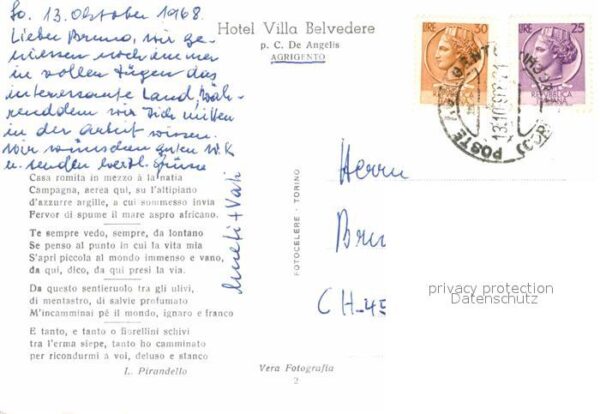 So. 13. Oktober 1968.
Lieber Bruno, wir ge-
niessen noch immer
in vollen Zügen das
interessante Land, Wäh-
renddem wir Dich mitten
in der Arbeit wissen.
Wir wünschen guten
u. senden herzl. Grüsse
+ Vati
Hotel Villa Belvedere
p. C. De Angelis
AGRIGENTO
LIRE 30
LIRE 25
Casa romita in mezzo à la natia
Campagna, aerea qui, su l'altipiano
d'azzurre argille, a cui sommesso invia
Fervor di spume il mare aspro africano.
Te sempre vedo, sempre, da lontano
Se penso al punto in cui la vita mia
S'aprì piccola al mondo immenso e vano,
da qui, dico, da qui presi la via.
Da questo sentieruolo tra gli ulivi,
di mentastro, di salvie profumato
M'incamminai pè il mondo, ignaro e franco
E tanto, e tanto o fiorellini schivi
tra l'erma siepe, tanto ho camminato
per ricondurmi a voi, deluso e stanco
L. Pirandello
FOTOCELERE - TORINO
Vera Fotografia
2
Herrn
Bru
CH-45
privacy protection
Datenschutz